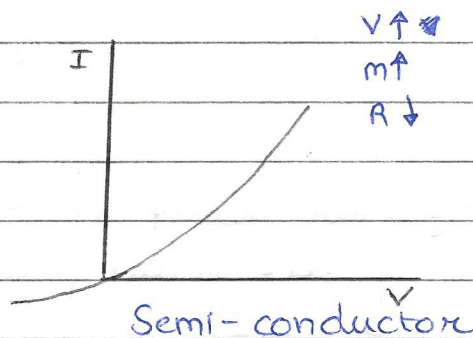 V↑
I
m↑
R↓
V
Semi-conductor